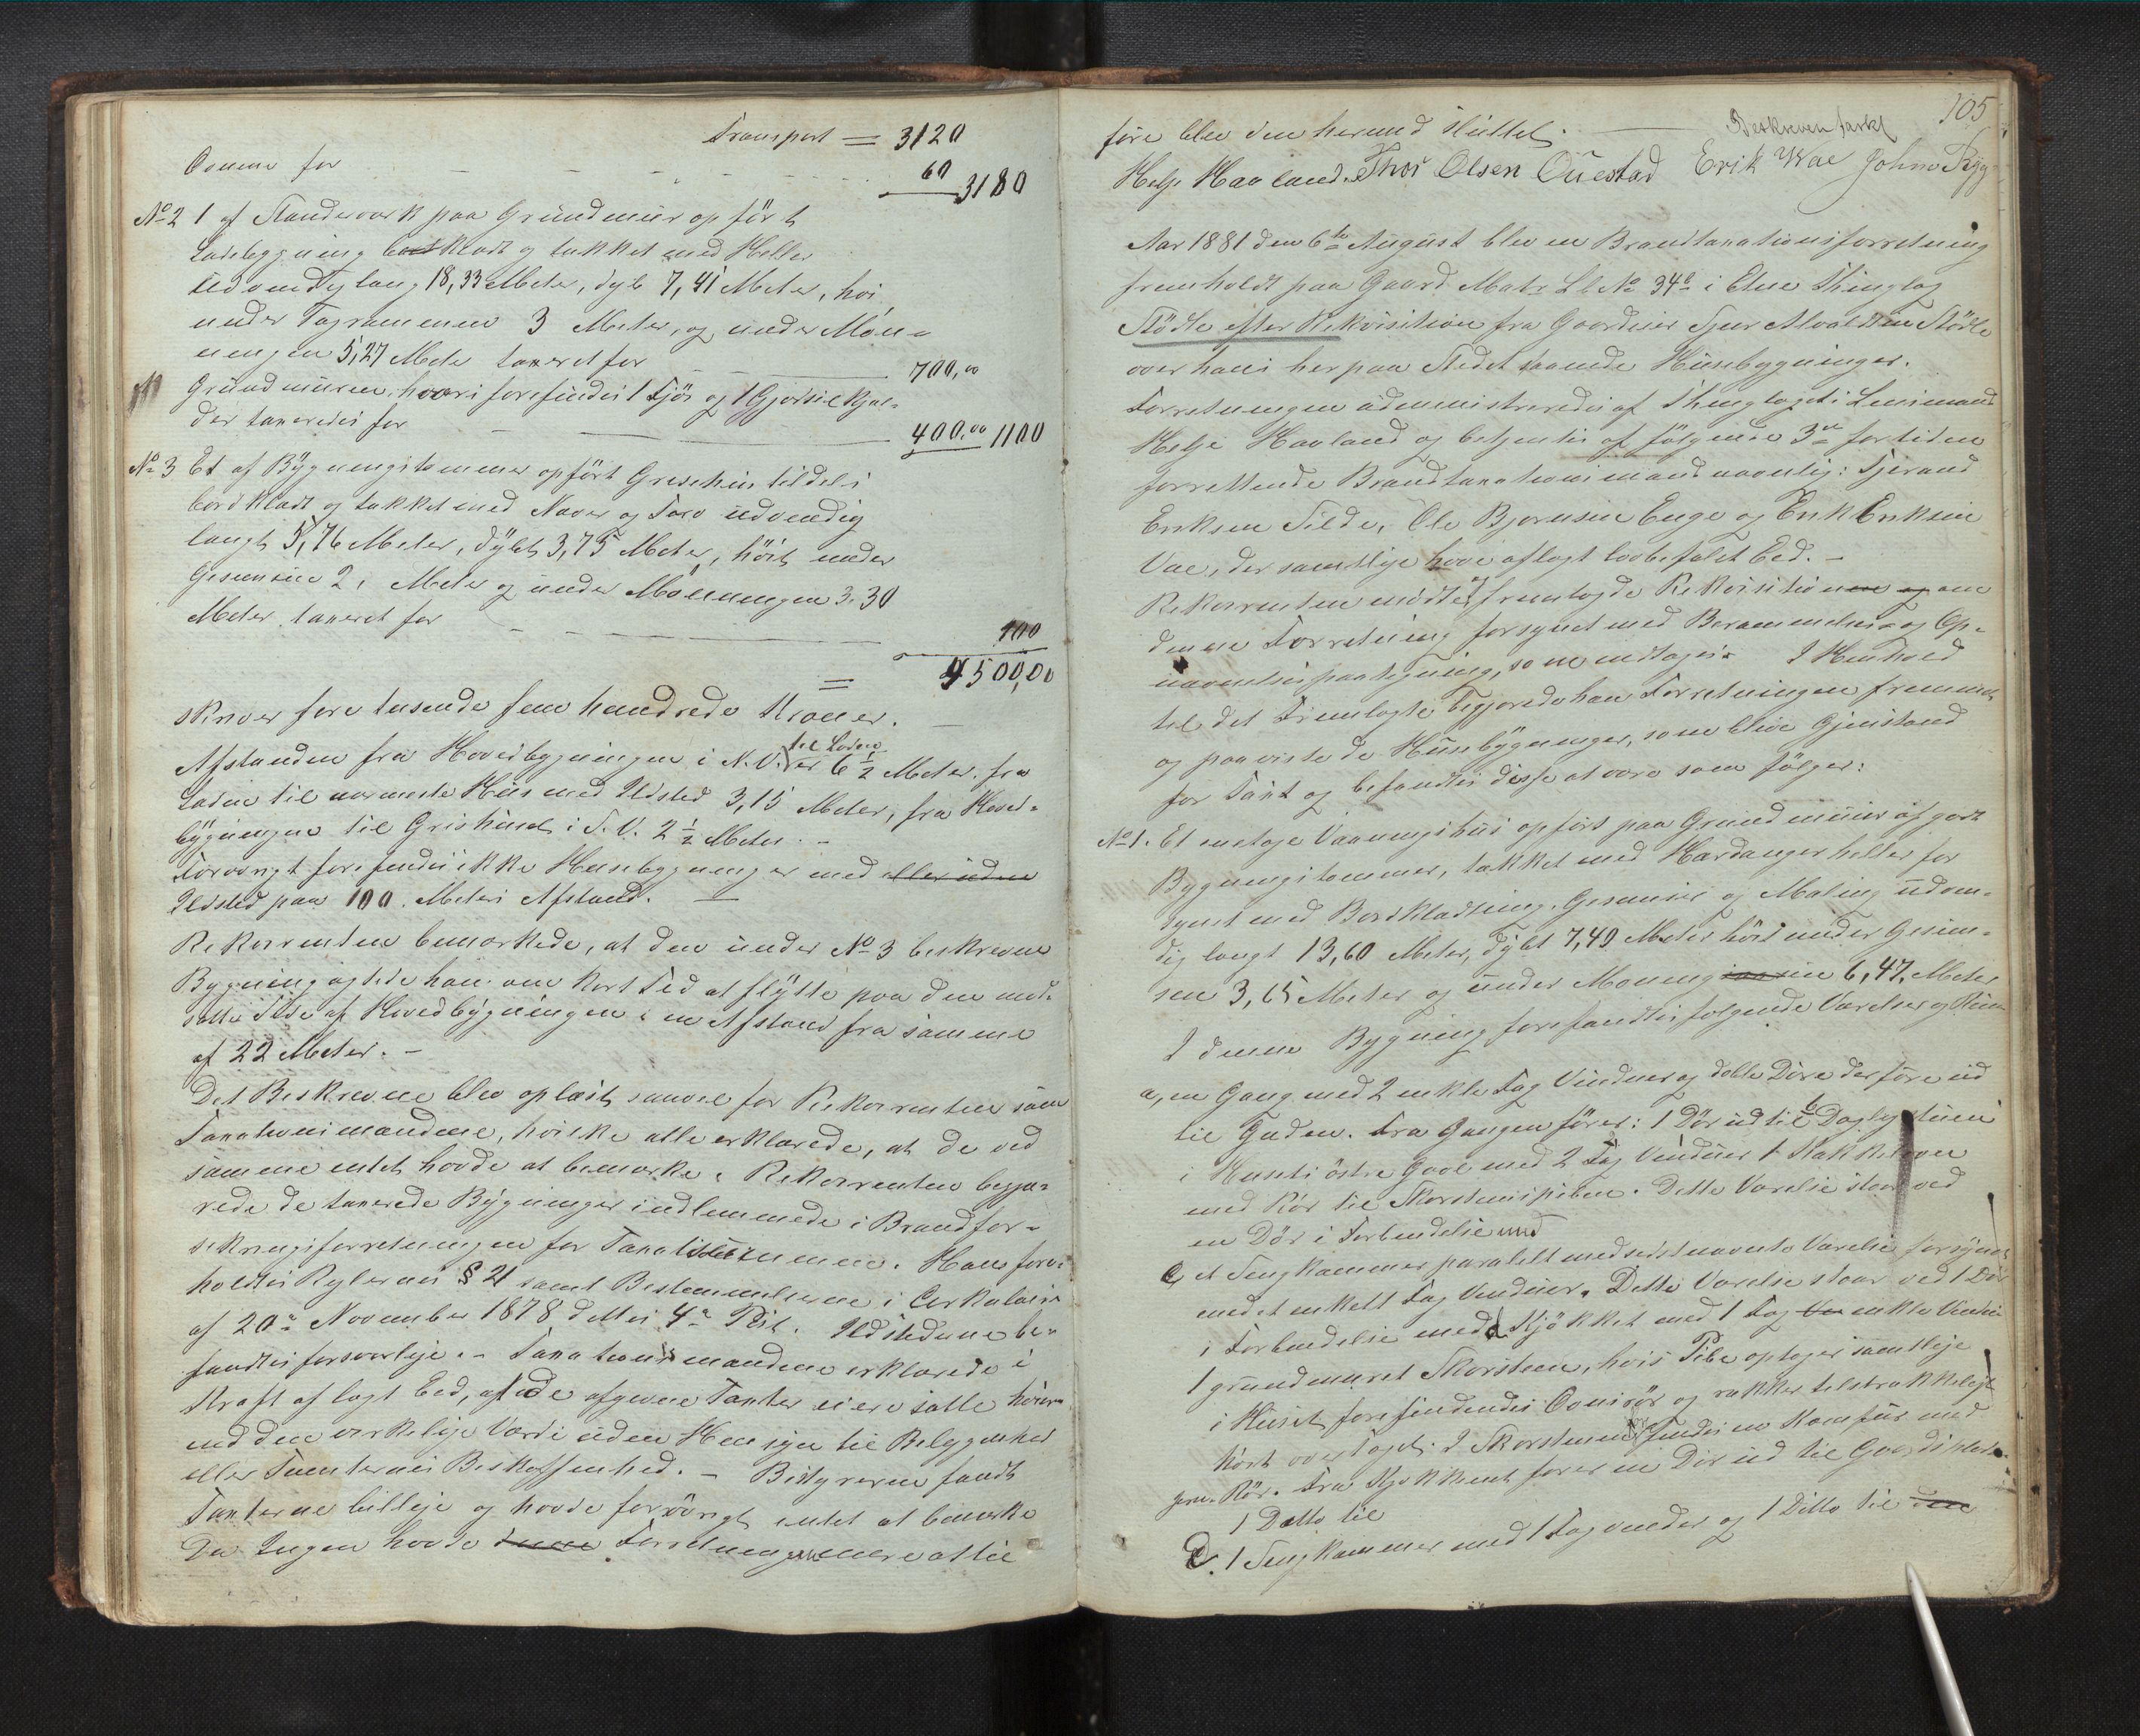 Transport = 3120
Ovnene for - - - - - 60 3180
No 2 1 af Standerverk paa Grundmuur opført
Ladebygning bordklædt og tækket med Heller
Udvendig lang 18,33 Meter, dyb 7,41 Meter, høi
under Tagrammen 3 Meter, og under Møn-
ningen 5,27 Meter taxeret for 700,00
Grundmuren, hvori forefindes 1 Fjøs og 1 Gjødselkjæl-
der taxeredes for 400,00 1100
No 3 Et af Bygningstømmer opført Grisehus tildels
bordklædt og tækket med Næver og Torv udvendig
langt 5,76 Meter, dybt 3,75 Meter, høit under
Gesimsen 2, Meter og under Mønningen 3.30
Meter taxeret for 100
= 4500,00
skriver fire tusende fem hundrede Kroner.
Afstanden fra Hovedbygningen i N.V. til Laden er 6 1/2 Meter, fra
Laden til nærmeste Huus med Ildsted 3,15 Meter, fra Hoved-
bygningen til Grisehuset i S.V. 2 1/2 Meter. -
Forøvrigt forefindes ikke Husebygninger med eller uden
Ildsted paa 100 Meters Afstand. -
Rekvirenten bemærkede, at den under No 3 beskrevne
Bygning agtede han om kort Tid at flytte paa den mod-
satte Side af Hovedbygningen i en Afstand fra samme
af 22 Meter. -
Det Beskrevne blev oplæst saavel for Rekvirenten som
Taxationsmændene, hvilke alle erklærede, at de ved
samme intet havde at bemærke. Rekvirenten begjæ-
rede de taxerede Bygninger indlemmede i Brandfor-
sikringsforretningen for Taxationssummene. Hans fore-
holdtes Reglernes § 21 samt Bestemmelserne i Cirkulaire
af 20de November 1878 dettes 4de Post. Ildstederne be-
fandtes forsvarlige. - Taxationsmændene erklærede i
Kraft af lagt Eed, at de afgivne Taxter ei ere satte høiere
end den virkelige Værdi uden Hensyn til Beliggenhed
eller Tomternes Beskaffenhed. - Bestyreren fandt
Taxterne billige og havde forøvrigt intet at bemærke
Da Ingen havde denne Forretningen mere at til
105
føre blev den hermed sluttet. Beskreven
Helje Havland. Thor Olsen Ouestad Erik Wae John
Aar 1881 den 6te August blev en Brandtaxationsforretning
fremholdt paa Gaard Matr Lb No 34a i Etne Thinglag
Stødle efter Rekvisition fra Gaardeier Sjur Stødle
over hans her paa Stedet havende Husebygninger.
Forretningen administreredes af Thinglagets Lensmand
Helje Havland og betjentes af følgende 3de for tiden
forrettende Brandtaxationsmænd navnlig: Tjerand
Eriksen Silde, Ole Bjørnsen Enge og Erik Eriksen
Vae, der samtlige have aflagt lovbefalet Eed. -
Rekvirenten mødte og fremlagde Rekvisitionen og om
denne Forretning forsynet med Berammelses og Op-
nævnelsespaategning, som indtages. I Henhold
til det Fremlagte begjærede han Forretningen fremmet
og paaviste de Husebygninger, som blive Gjenstand
for Taxt og befandtes disse at være som følger:
No 1. Et enetages Vaaningshus opført paa Grundmuur af godt
Bygningstømmer, tækket med Hardangerheller for
synet med Bordklædning, Gesimser og Maling udven-
dig langt 13,60 Meter, dybt 7,40 Meter høit under Gesim-
sen 3,65 Meter og under Mønningen 6,47. Meter
I denne Bygning forefandtes følgende Værelser og Rum
a, en Gang med 2 enkle Fag Vinduer og doble Døre der føre ud
til Gaden. Fra Gangen fører: 1 Dør ud til b Dagligstuen
i Husets østre Gavl med 2 Fag Vinduer 1 Kakkelovn
med Rør til Skorstenspiben. Dette Værelse staar ved
en Dør i Forbindelse med
C, et Sengkammer paralelt med sidstnævnte Værelse forsynet
med et enkelt Fag Vinduer. Dette Værelse staar ved 1 Dør
i Forbindelse med d Kjøkket med 1 Fag enkle Vinduer
1 grundmuret Skorsteen, hvis Pibe optager samtlige
i Huset forefindendes Ovnsrør og rækker tilstrækkeligt
høit over Taget. I Skorstenen forefindes en Komfur med
Jern-Rør. Fra Kjøkkenet fører en Dør ud til Gaardsplads
1 Ditto til
e. 1 Sengkammer med 1 Fag vinduer og 1 Ditto til den